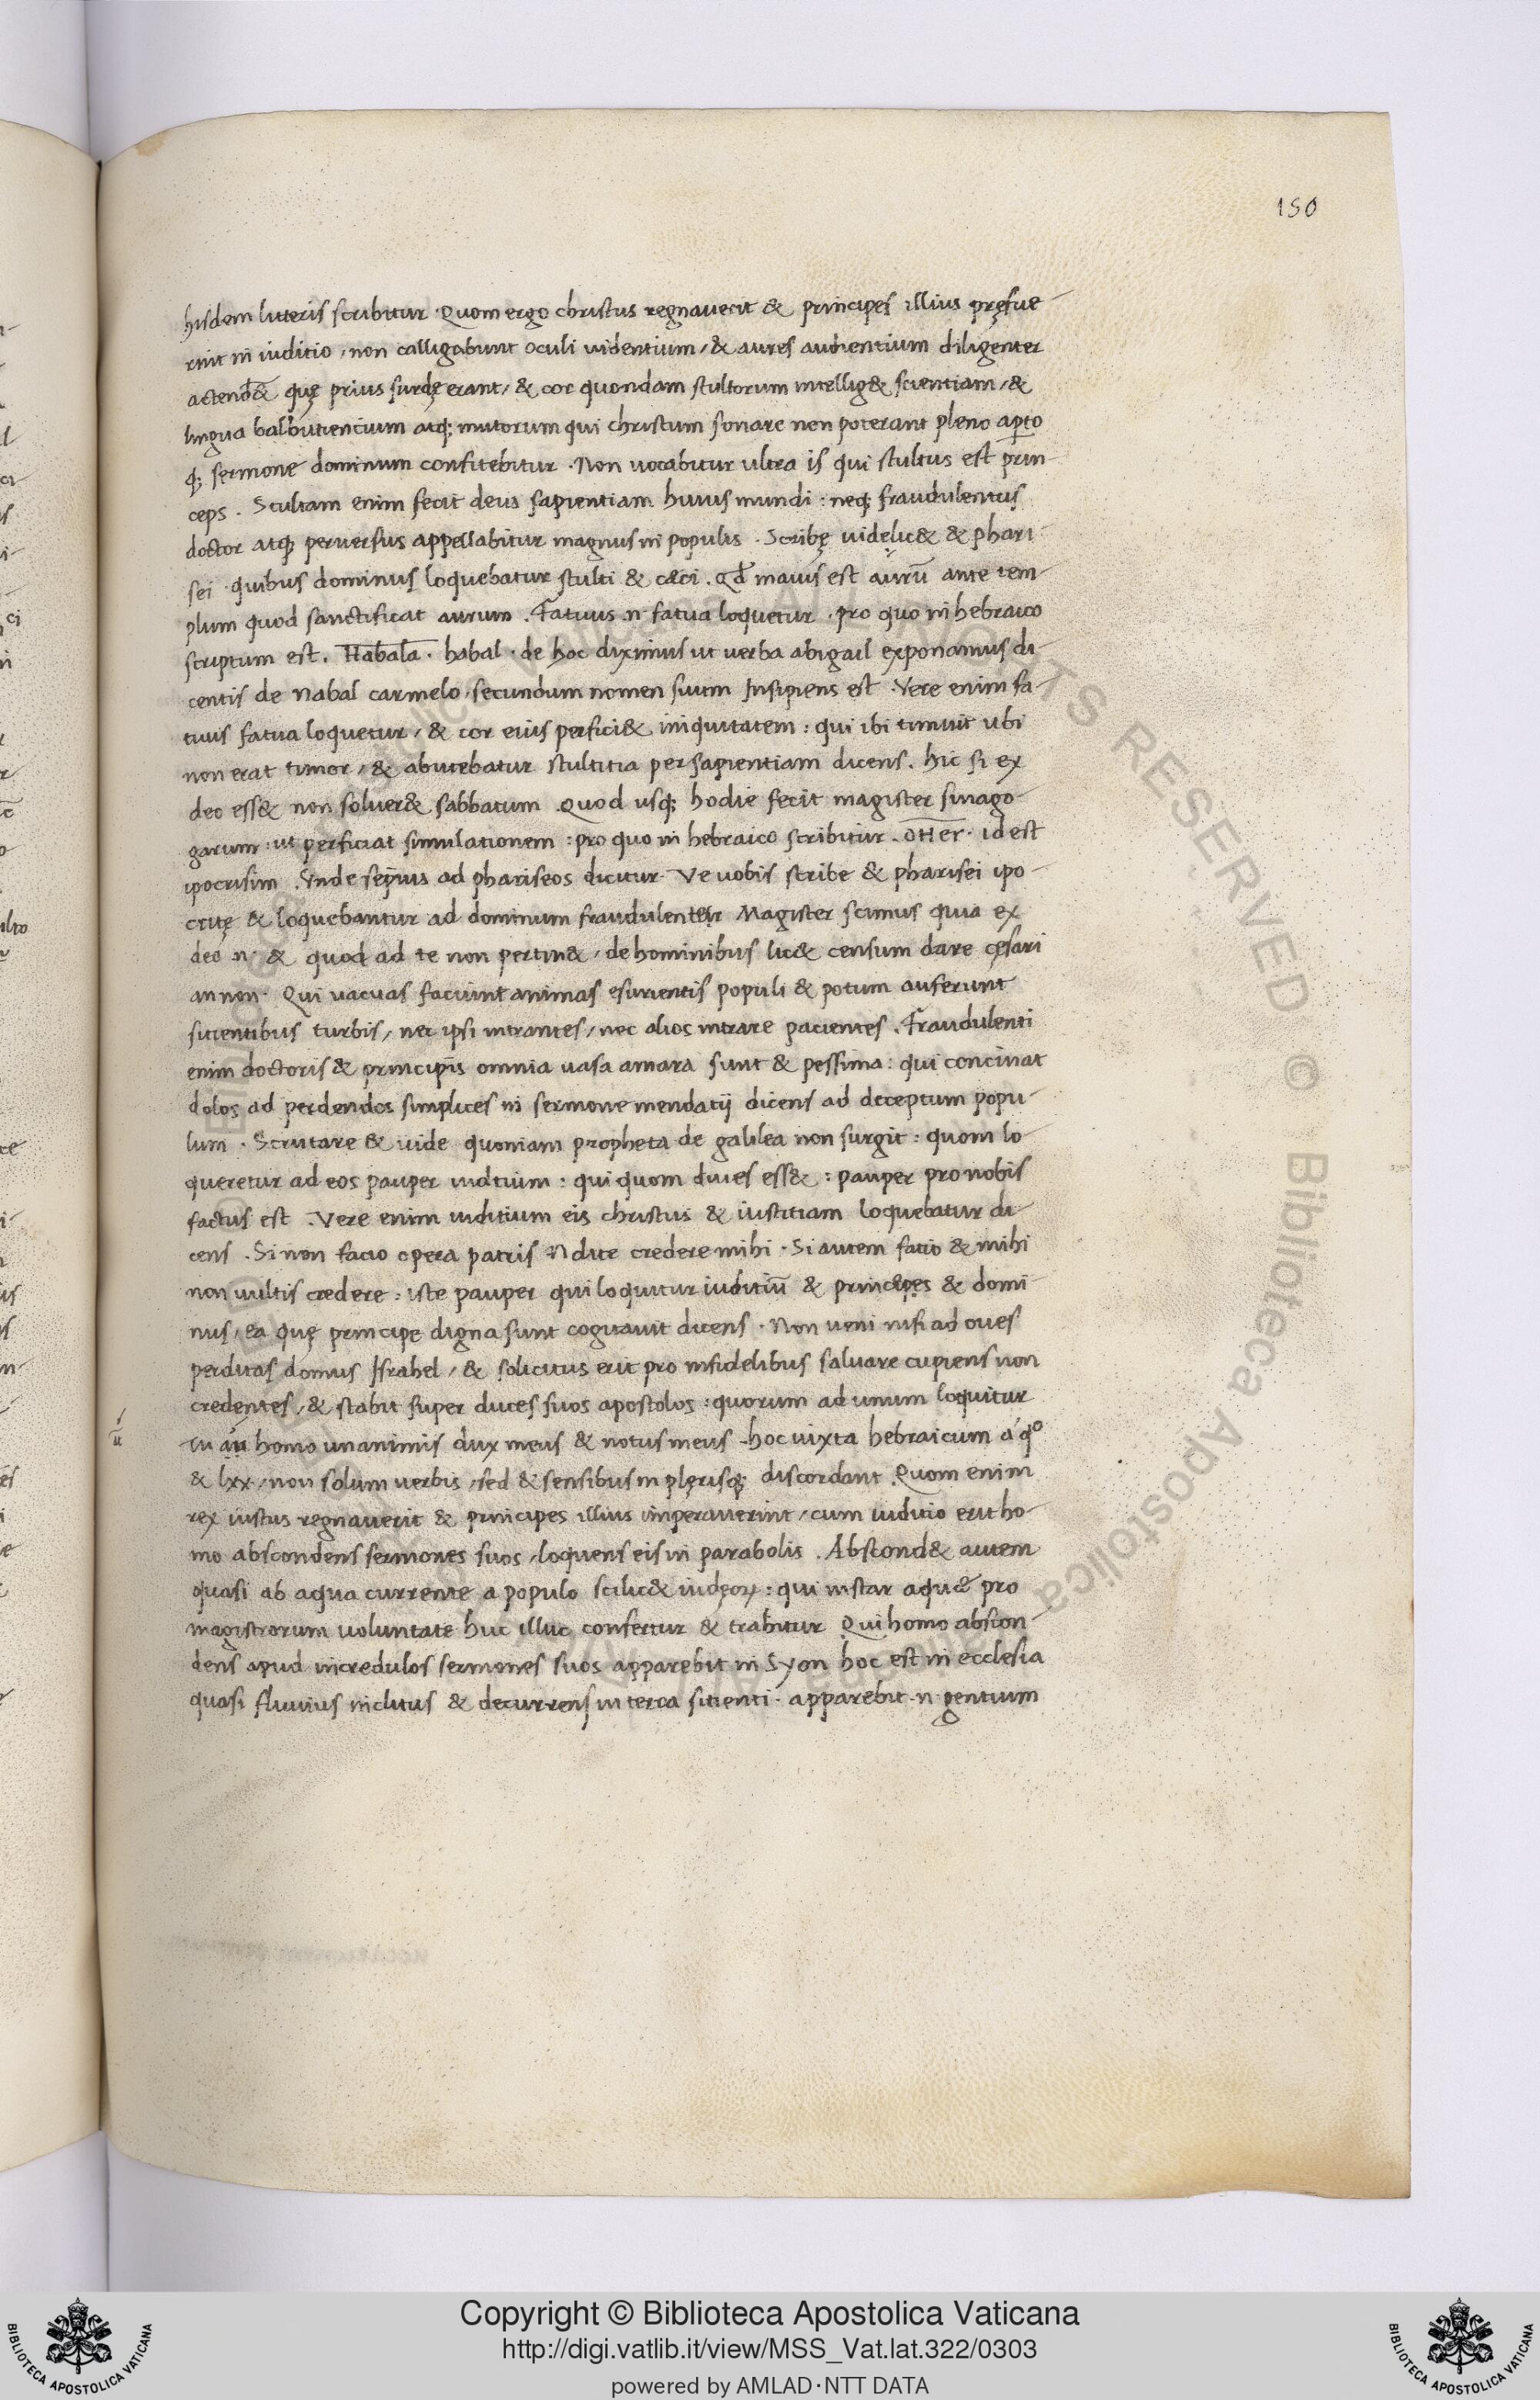 150
hisdem litteris scribitur. Quom ergo christus regnauerit & principes illius pręfue
rint in iuditio, non calligabunt oculi uidentium, & aures audientium diligenter
actend& quę prius surdę erant, & cor quondam stultorum intellig& scientiam, &
lingua balbutientium atq; mutorum qui christum sonare non poterant pleno apto
q; sermone dominum confitebitur. Non uocabitur ultra is qui stultus est prin
ceps. Stultam enim fecit deus sapientiam huius mundi: neq; fraudulentus
doctor atq; peruersus appellabitur magnus in populis. Scribę uidelic& & phari
sei quibus dominus loquebatur stulti & cæci. Qd maius est aurū ante tem
plum quod sanctificat aurum. Fatuus .n. fatua loquetur. pro quo in hebraico
scriptum est. Habala. habal. de hoc diximus ut uerba abigail exponamus di
centis de Nabal carmelo, secundum nomen suum Insipiens est. Vere enim fa
tuus fatua loquetur, & cor eius perfici& iniquitatem: qui ibi timuit ubi
non erat timor, & abutebatur stultitia per sapientiam dicens. hic si ex
deo ess& non soluer& sabbatum. Quod usq; hodie fecit magister sinago
garum: ut perficiat simulationem: pro quo in hebraico scribitur. oHer. id est
ipocrisim. Vnde sępius ad phariseos dicitur. Ve uobis scribe & pharisei ipo
critę & loquebantur ad dominum fraudulenter Magister scimus quia ex
deo .n. & quod ad te non pertin&, de hominibus lic& censum dare cęsari
an non. Qui uacuas faciunt animas esurientis populi & potum auferunt
sitientibus turbis, nec ipsi intrantes, nec alios intrare pacientes. Fraudulenti
enim doctoris & principis omnia uasa amara sunt & pessima: qui concinat
dolos ad perdendos simplices in sermone mendatij dicens ad deceptum popu
lum. Scrutare & uide quoniam propheta de galilea non surgit: quom lo
queretur ad eos pauper iuditium: qui quom diues ess&: pauper pro nobis
factus est. Vere enim iuditium eis christus & iustitiam loquebatur di
cens. Si non facio opera patris Nolite credere mihi. Si autem fatio & mihi
non uultis credere: iste pauper qui loquitur iuditiū & princeps & domi
nus, ea quę principe digna sunt cogitauit dicens. Non ueni nisi ad oues
perditas domus Israhel, & solicitus erit pro infidelibus saluare cupiens non
credentes, & stabit super duces suos apostolos: quorum ad unum loquitur
Tu aū homo unanimis dux meus & notus meus. hoc iuxta hebraicum a qo
& lxx, non solum uerbis, sed & sensibus in plęrisq; discordant. Quom enim
rex iustus regnauerit & principes illius imperauerint, cum iuditio erit ho
mo abscondens sermones suos, loquens eis in parabolis. Abscond& autem
quasi ab aqua currente a populo scilic& iudęoꝝ: qui instar aquæ pro
magistrorum uoluntate huc illuc confertur & trahitur. Qui homo abscon
dens apud incredulos sermones suos apparebit in Syon hoc est in ecclesia
quasi fluuius inclitus & decurrens in terra sitienti. apparebit .n. gentium
Copyright © Biblioteca Apostolica Vaticana
http://digi.vatlib.it/view/MSS_Vat.lat.322/0303
powered by AMLAD·NTT DATA